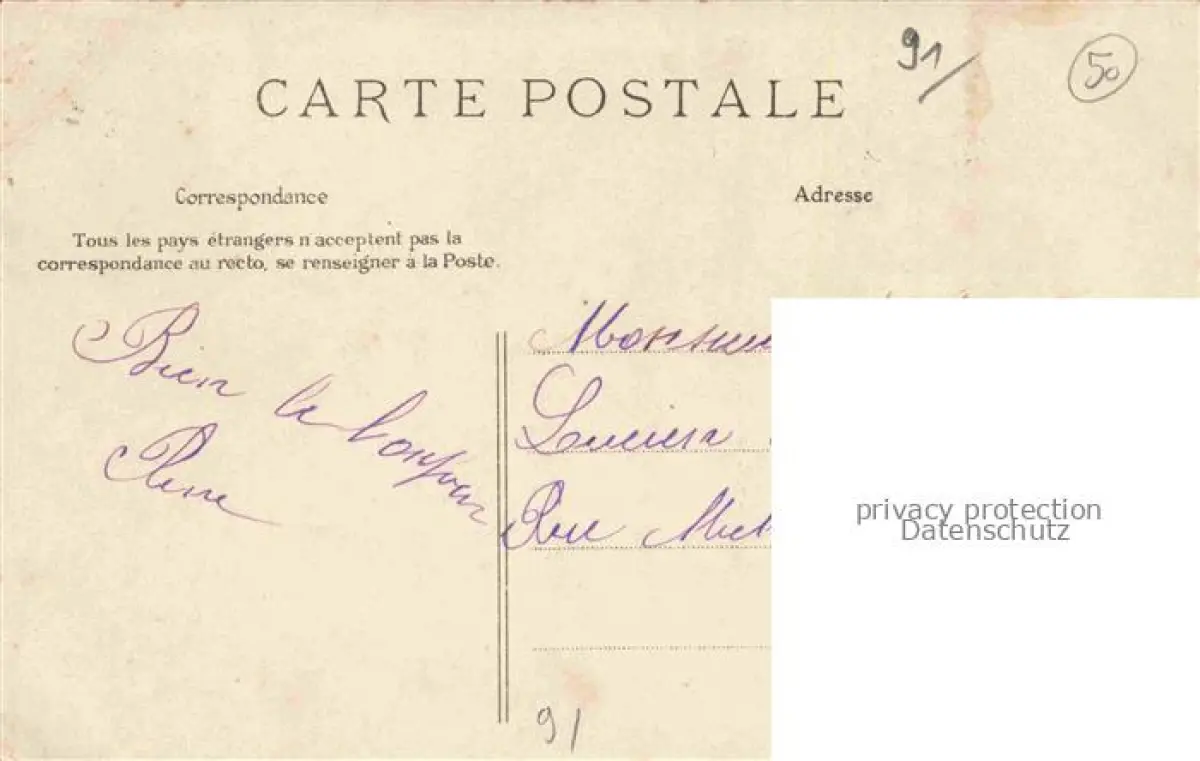 91/
50
CARTE POSTALE
Correspondance
Adresse
Tous les pays étrangers n'acceptent pas la
correspondance au recto, se renseigner à la Poste.
Bien le bonjour
Monsieur
Lucien
Rue
91
privacy protection
Datenschutz